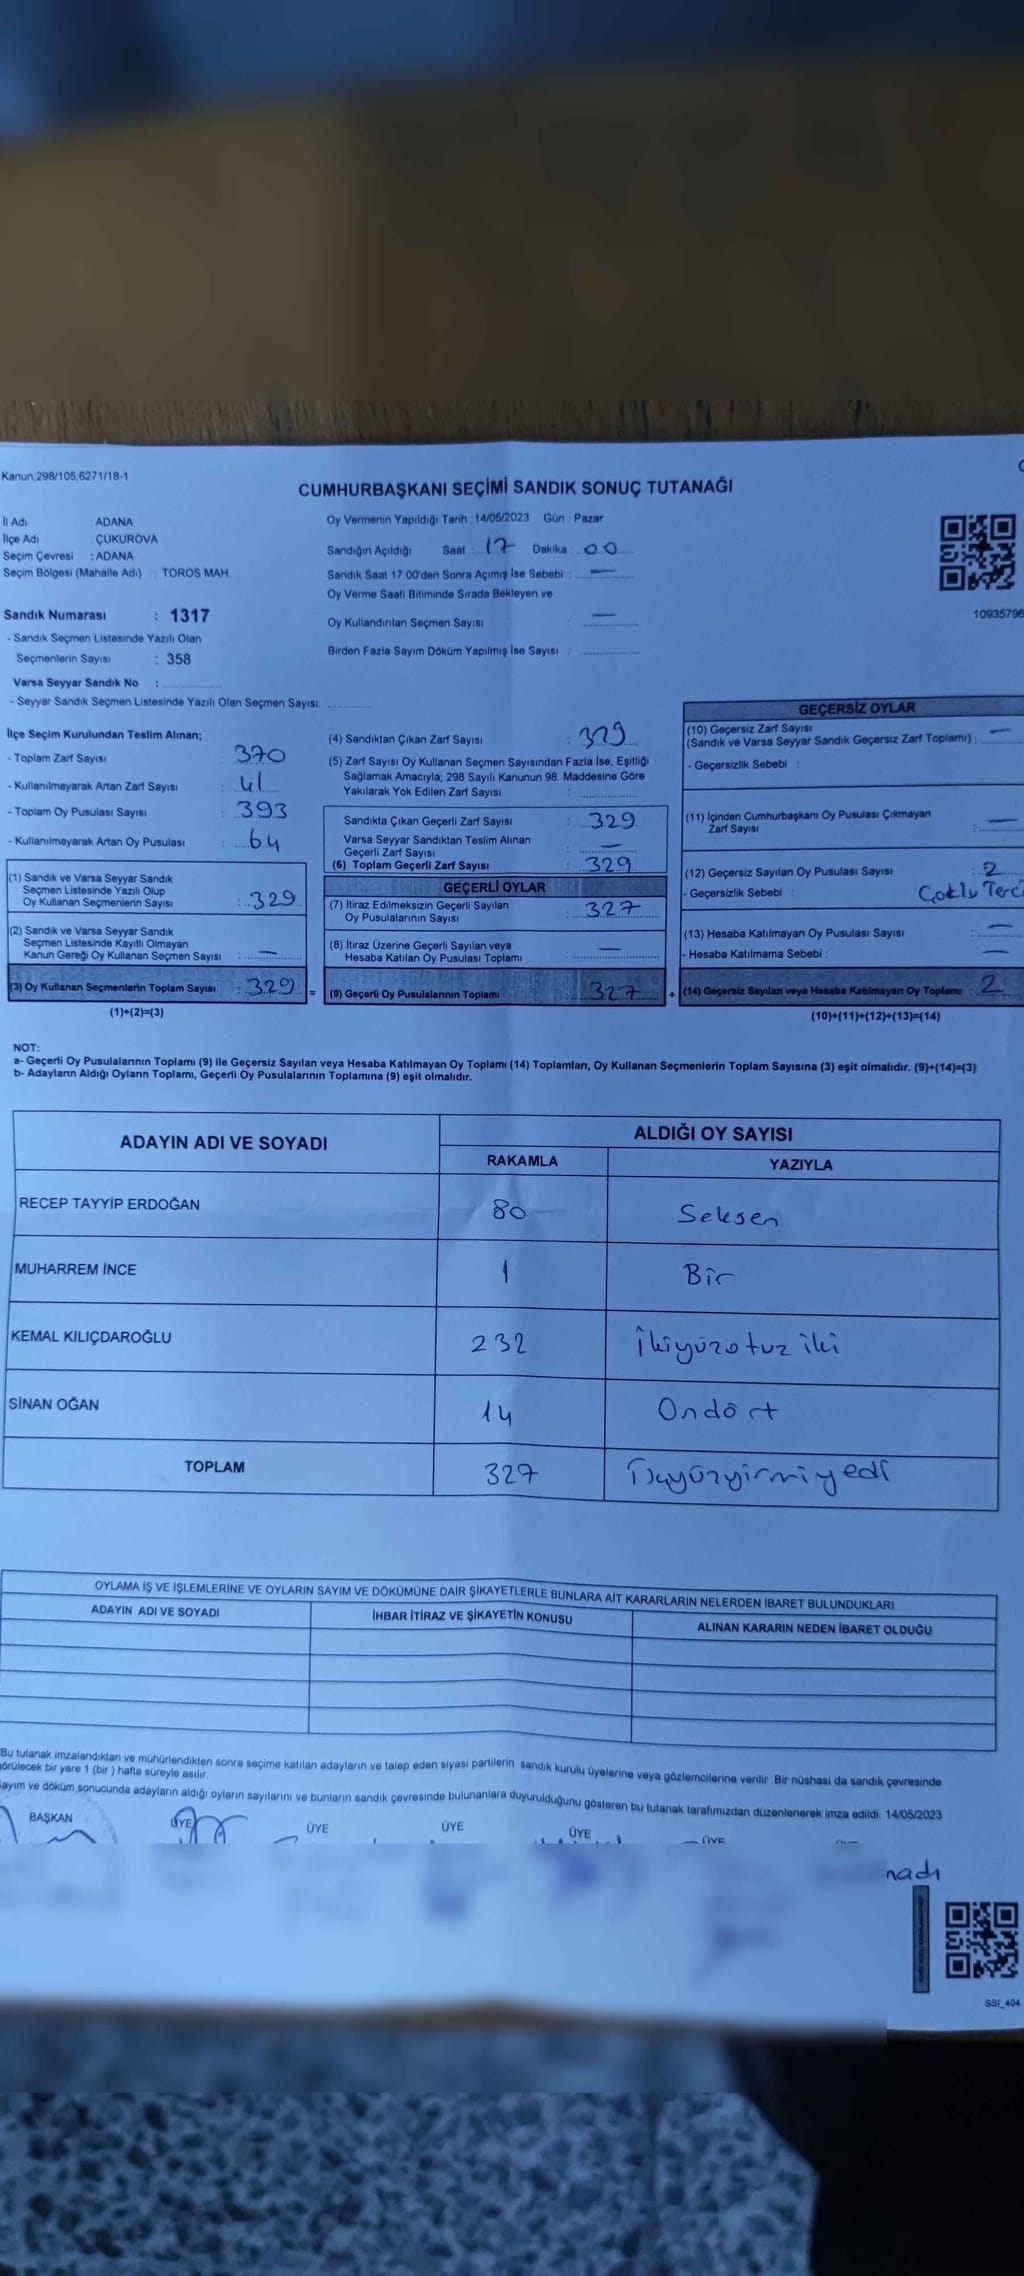 Kanun,298/105;6271/18-1
CUMHURBAŞKANI SEÇİMİ SANDIK SONUÇ TUTANAĞI
İl Adı : ADANA
İlçe Adı : ÇUKUROVA
Seçim Çevresi : ADANA
Seçim Bölgesi (Mahalle Adı) : TOROS MAH.
Sandık Numarası : 1317
- Sandık Seçmen Listesinde Yazılı Olan
Seçmenlerin Sayısı : 358
Varsa Seyyar Sandık No :
- Seyyar Sandık Seçmen Listesinde Yazılı Olan Seçmen Sayısı:
Oy Vermenin Yapıldığı Tarih : 14/05/2023 Gün : Pazar
Sandığın Açıldığı Saat 17 Dakika : 00
Sandık Saat 17:00'den Sonra Açımış İse Sebebi : —
Oy Verme Saati Bitiminde Sırada Bekleyen ve
Oy Kullandırılan Seçmen Sayısı : —
Birden Fazla Sayım Döküm Yapılmış İse Sayısı :
10935796
İlçe Seçim Kurulundan Teslim Alınan;
- Toplam Zarf Sayısı : 370
- Kullanılmayarak Artan Zarf Sayısı : 41
- Toplam Oy Pusulası Sayısı : 393
- Kullanılmayarak Artan Oy Pusulası : 64
(1) Sandık ve Varsa Seyyar Sandık
Seçmen Listesinde Yazılı Olup
Oy Kullanan Seçmenlerin Sayısı : 329
(2) Sandık ve Varsa Seyyar Sandık
Seçmen Listesinde Kayıtlı Olmayan
Kanun Gereği Oy Kullanan Seçmen Sayısı : —
(3) Oy Kullanan Seçmenlerin Toplam Sayısı : 329 =
(1)+(2)=(3)
(4) Sandıktan Çıkan Zarf Sayısı : 329
(5) Zarf Sayısı Oy Kullanan Seçmen Sayısından Fazla İse, Eşitliği
Sağlamak Amacıyla; 298 Sayılı Kanunun 98. Maddesine Göre
Yakılarak Yok Edilen Zarf Sayısı :
Sandıkta Çıkan Geçerli Zarf Sayısı : 329
Varsa Seyyar Sandıktan Teslim Alınan
Geçerli Zarf Sayısı : —
(6) Toplam Geçerli Zarf Sayısı : 329
GEÇERLİ OYLAR
(7) İtiraz Edilmeksizin Geçerli Sayılan
Oy Pusulalarının Sayısı : 327
(8) İtiraz Üzerine Geçerli Sayılan veya
Hesaba Katılan Oy Pusulası Toplamı : —
(9) Geçerli Oy Pusulalarının Toplamı : 327 +
GEÇERSİZ OYLAR
(10) Geçersiz Zarf Sayısı
(Sandık ve Varsa Seyyar Sandık Geçersiz Zarf Toplamı) : —
- Geçersizlik Sebebi :
(11) İçinden Cumhurbaşkanı Oy Pusulası Çıkmayan
Zarf Sayısı : —
(12) Geçersiz Sayılan Oy Pusulası Sayısı : 2
- Geçersizlik Sebebi : Çoklu Terci
(13) Hesaba Katılmayan Oy Pusulası Sayısı : —
- Hesaba Katılmama Sebebi : —
(14) Geçersiz Sayılan veya Hesaba Katılmayan Oy Toplamı : 2
(10)+(11)+(12)+(13)=(14)
NOT:
a- Geçerli Oy Pusulalarının Toplamı (9) ile Geçersiz Sayılan veya Hesaba Katılmayan Oy Toplamı (14) Toplamları, Oy Kullanan Seçmenlerin Toplam Sayısına (3) eşit olmalıdır. (9)+(14)=(3)
b- Adayların Aldığı Oyların Toplamı, Geçerli Oy Pusulalarının Toplamına (9) eşit olmalıdır.
ADAYIN ADI VE SOYADI ALDIĞI OY SAYISI
RAKAMLA YAZIYLA
RECEP TAYYİP ERDOĞAN 80 Seksen
MUHARREM İNCE 1 Bir
KEMAL KILIÇDAROĞLU 232 İkiyüzotuz iki
SİNAN OĞAN 14 Ondört
TOPLAM 327 Üçyüzyirmiyedi
OYLAMA İŞ VE İŞLEMLERİNE VE OYLARIN SAYIM VE DÖKÜMÜNE DAİR ŞİKAYETLERLE BUNLARA AİT KARARLARIN NELERDEN İBARET BULUNDUKLARI
ADAYIN ADI VE SOYADI İHBAR İTİRAZ VE ŞİKAYETİN KONUSU ALINAN KARARIN NEDEN İBARET OLDUĞU
Bu tutanak imzalandıktan ve mühürlendikten sonra seçime katılan adayların ve talep eden siyasi partilerin sandık kurulu üyelerine veya gözlemcilerine verilir. Bir nüshası da sandık çevresinde
görülecek bir yere 1 (bir ) hafta süreyle asılır.
Sayım ve döküm sonucunda adayların aldığı oyların sayılarını ve bunların sandık çevresinde bulunanlara duyurulduğunu gösteren bu tutanak tarafımızdan düzenlenerek imza edildi. 14/05/2023
BAŞKAN ÜYE ÜYE ÜYE ÜYE ÜYE
nadı
SSI_404